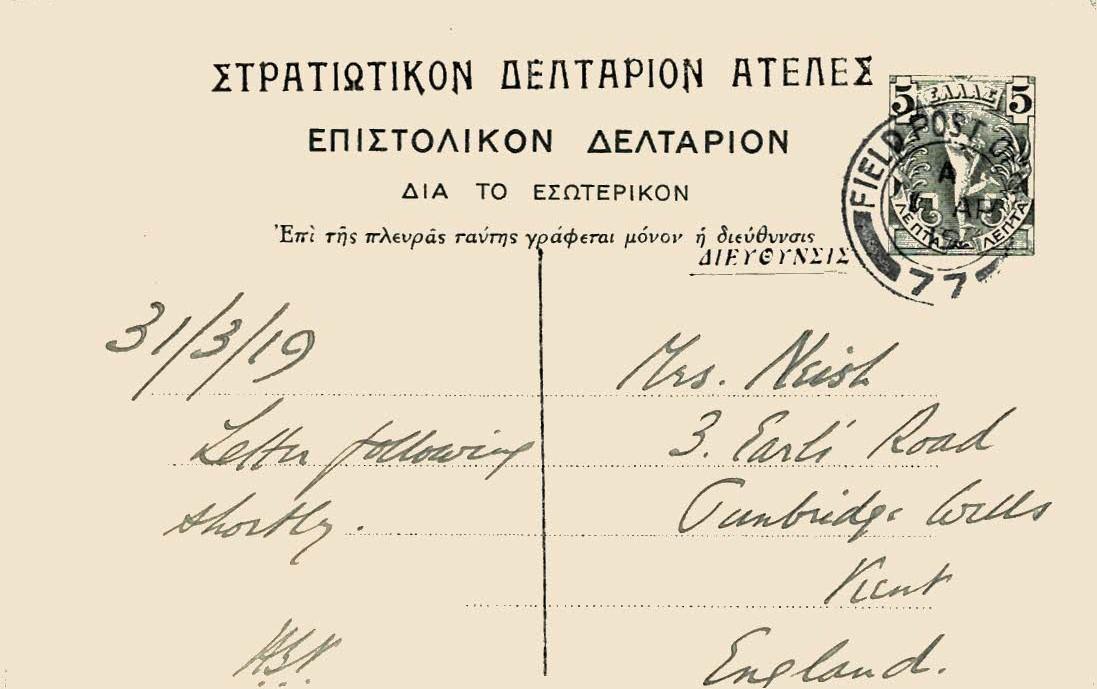 ΣΤΡΑΤΙΩΤΙΚΟΝ ΔΕΛΤΑΡΙΟΝ ΑΤΕΛΕΣ
ΕΠΙΣΤΟΛΙΚΟΝ ΔΕΛΤΑΡΙΟΝ
ΔΙΑ ΤΟ ΕΣΩΤΕΡΙΚΟΝ
Ἐπὶ τῆς πλευρᾶς ταύτης γράφεται μόνον ἡ διεύθυνσις
ΔΙΕΥΘΥΝΣΙΣ
5 ΕΛΛΑΣ 5
ΛΕΠΤΑ ΛΕΠΤΑ
FIELD POST
A
AP
77
31/3/19
Letter following
shortly.
Mrs. Neish
3. Earl's Road
Tunbridge Wells
Kent
England.